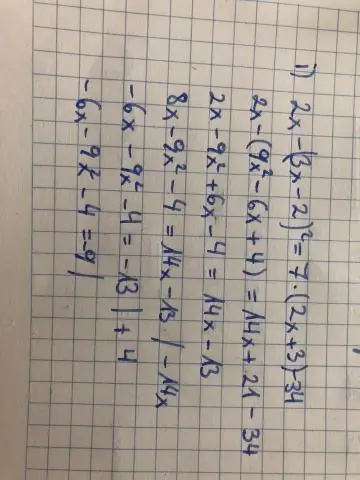 i) 2x-(3x-2)²=7·(2x+3)-34
2x-(9x²-6x+4)=14x+21-34
2x-9x²+6x-4=14x-13
8x-9x²-4=14x-13 |-14x
-6x-9x²-4=-13 |+4
-6x-9x²-4=-9 |